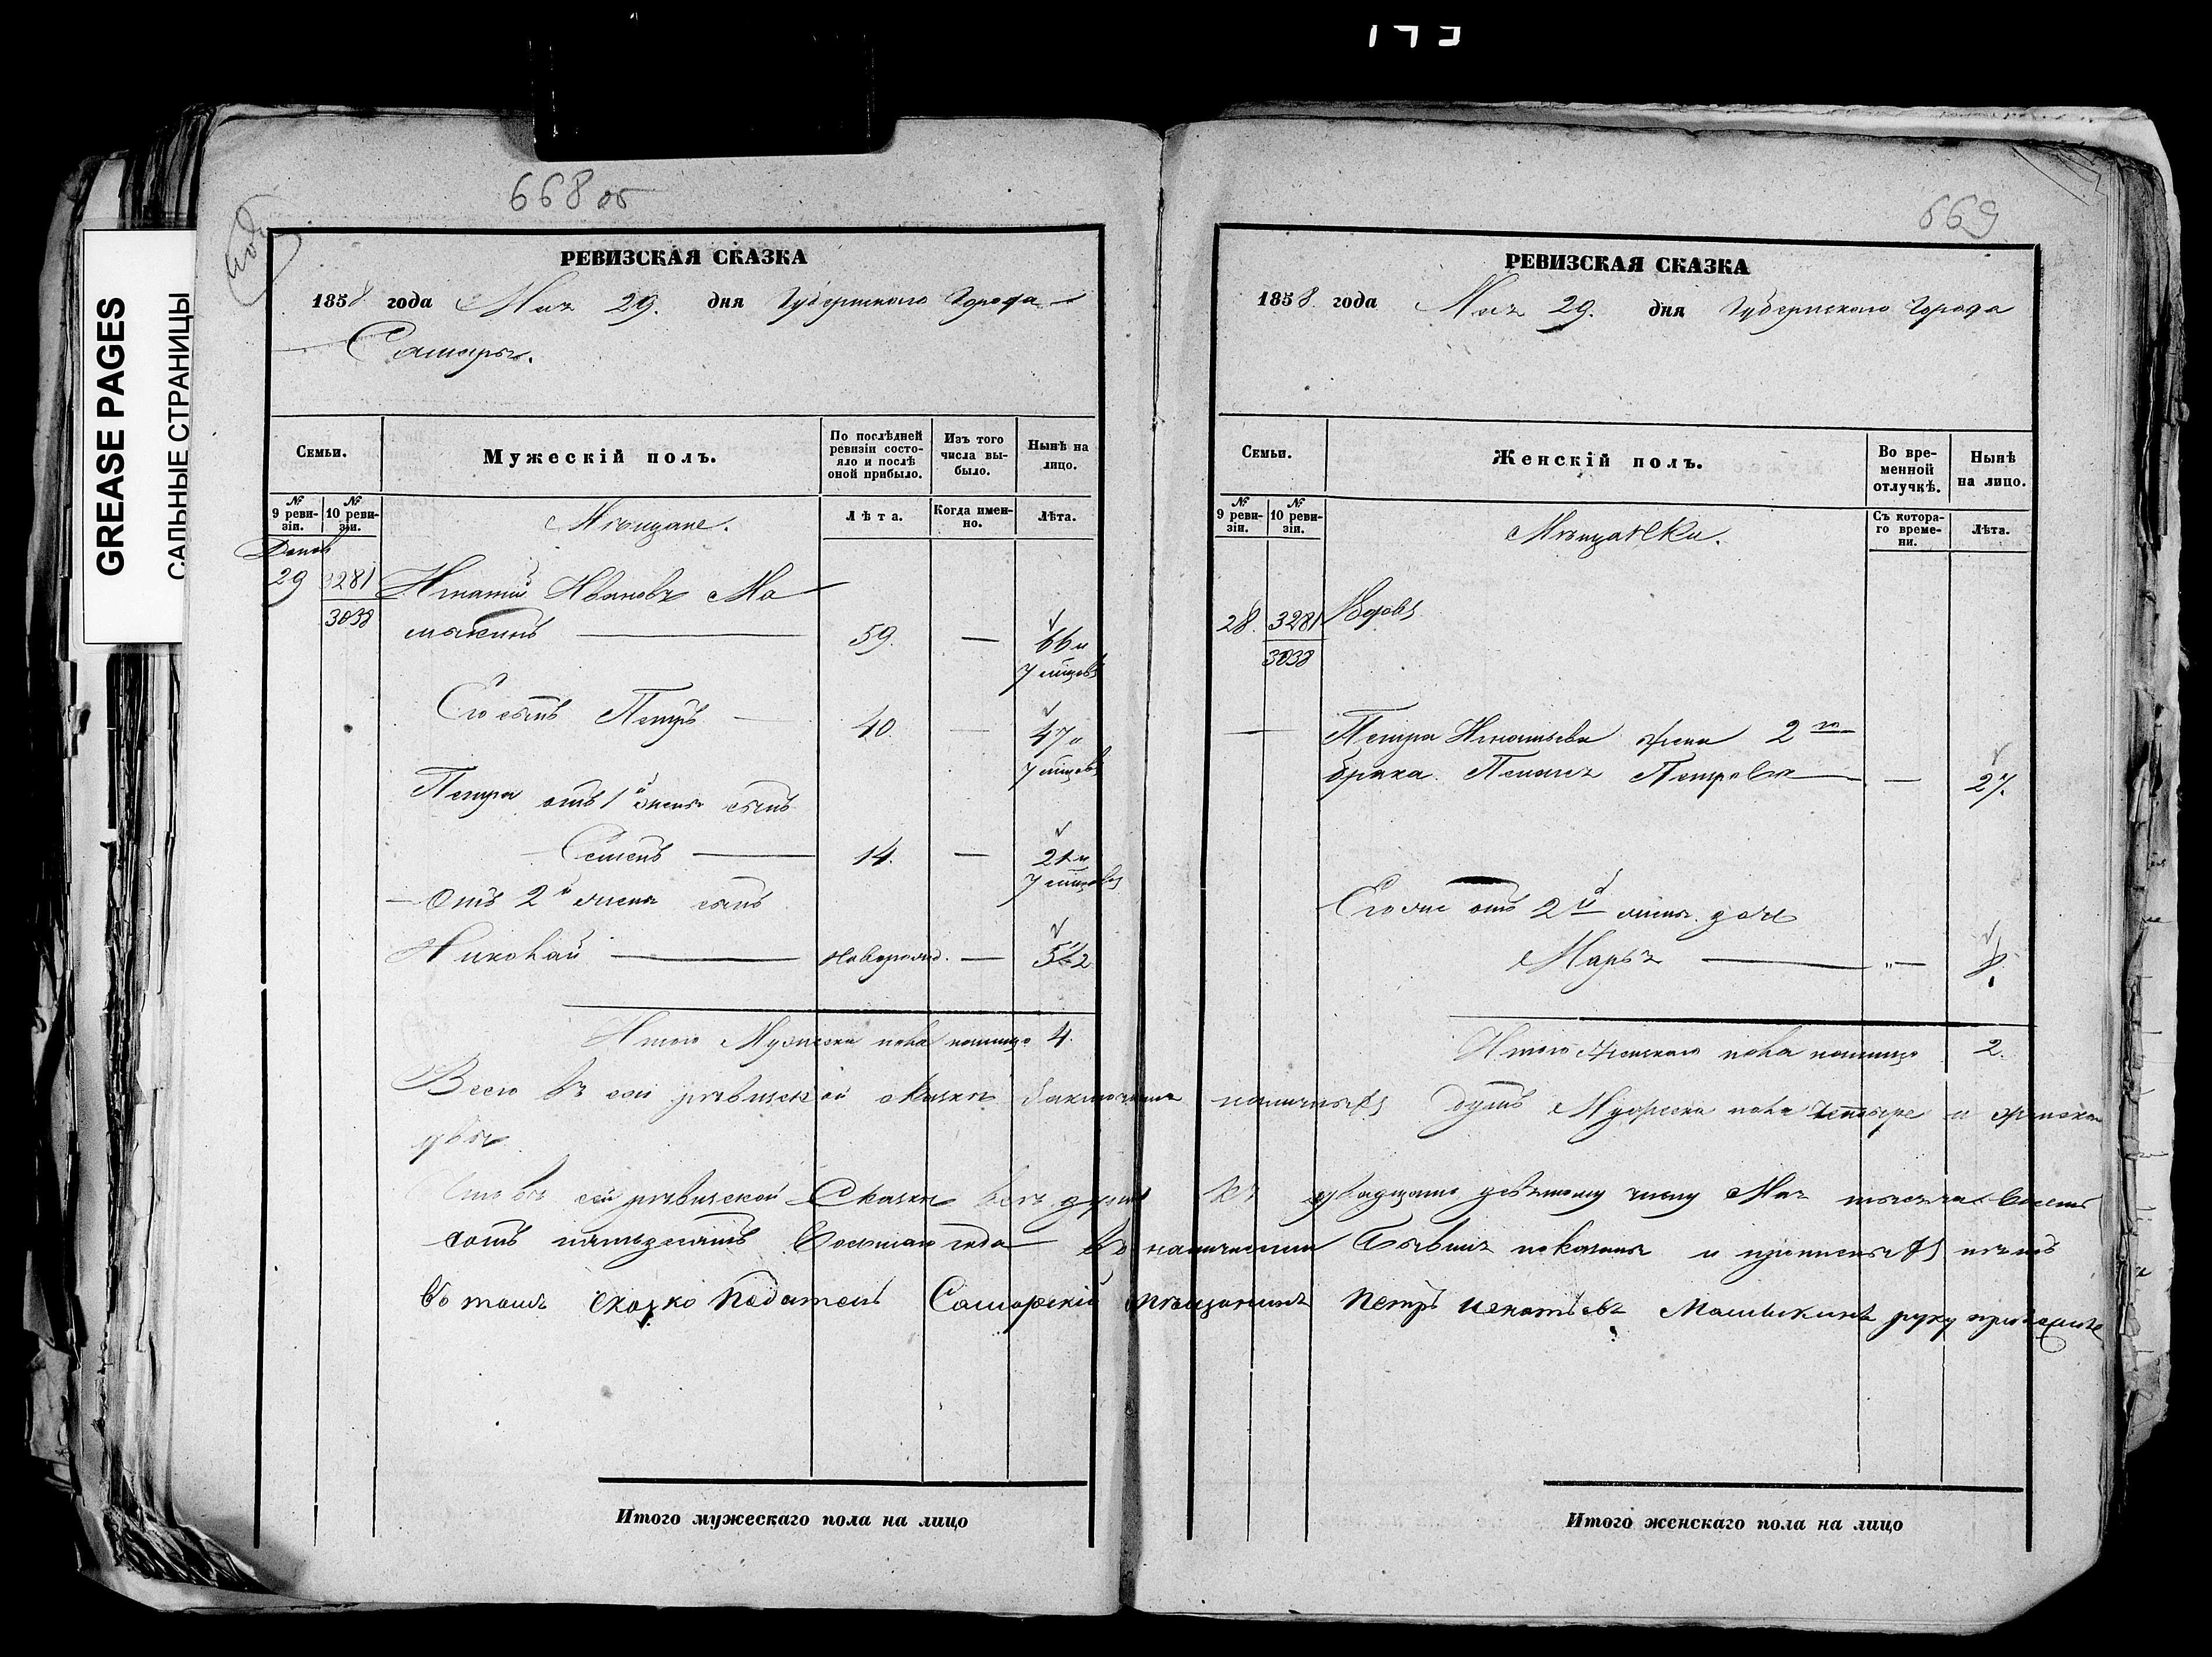 173
GREASE PAGES
САЛЬНЫЕ СТРАНИЦЫ
668 об
РЕВИЗСКАЯ СКАЗКА
1858 года Мая 29. дня Губернскаго Города
Самары.
Семьи.
Мужескій полъ.
По послѣдней ревизіи состояло и послѣ оной прибыло.
Изъ того числа выбыло.
Нынѣ на лицо.
№ 9 ревизіи.
№ 10 ревизіи.
Мѣщане.
Лѣта.
Когда именно.
Лѣта.
29 3281 Игнатій Ивановъ Ма
3038 мыкинъ 59. — 66 и
7 мѣсяцевъ
Его сынъ Петръ 40. — 47 и
7 мѣсяцевъ
Петра отъ 1й жены сынъ
Семенъ 14. — 21 и
7 мѣсяцевъ
Отъ 2й жены сынъ
Николай новорожд. — 5 1/2
Итого Мужеска пола налицо 4.
669
РЕВИЗСКАЯ СКАЗКА
1858 года Мая 29. дня Губернскаго Города
Семьи.
Женскій полъ.
Во временной отлучкѣ.
Нынѣ на лицо.
№ 9 ревизіи.
№ 10 ревизіи.
Мѣщанки.
Съ котораго времени.
Лѣта.
28. 3281 Вдовъ
3038
Петра Игнатьева жена 2го
брака Пелагея Петровна — 27.
Его же отъ 2й жены дочь
Марья „—
Итого Женскаго пола налицо 2.
Всего въ сей ревизской сказкѣ заключается наличныхъ душъ Мужеска пола четыре и женска
двѣ.
Что въ сей ревизской Сказкѣ всѣ души къ двадцать девятому числу Мая тысяча восемь
сотъ пятьдесятъ восьмаго года въ наличности бывшія показаны и прописныхъ нѣтъ
во томъ скаско Податель Самарскій мѣщанинъ Петръ Игнатьевъ Мамыкинъ руку приложилъ
Итого мужескаго пола на лицо
Итого женскаго пола на лицо